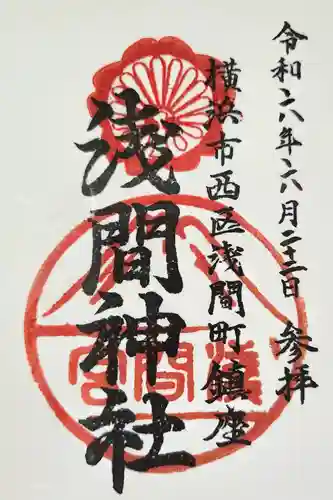 令和六年六月二十三日 参拝
横浜市西区浅間町鎮座
浅間神社